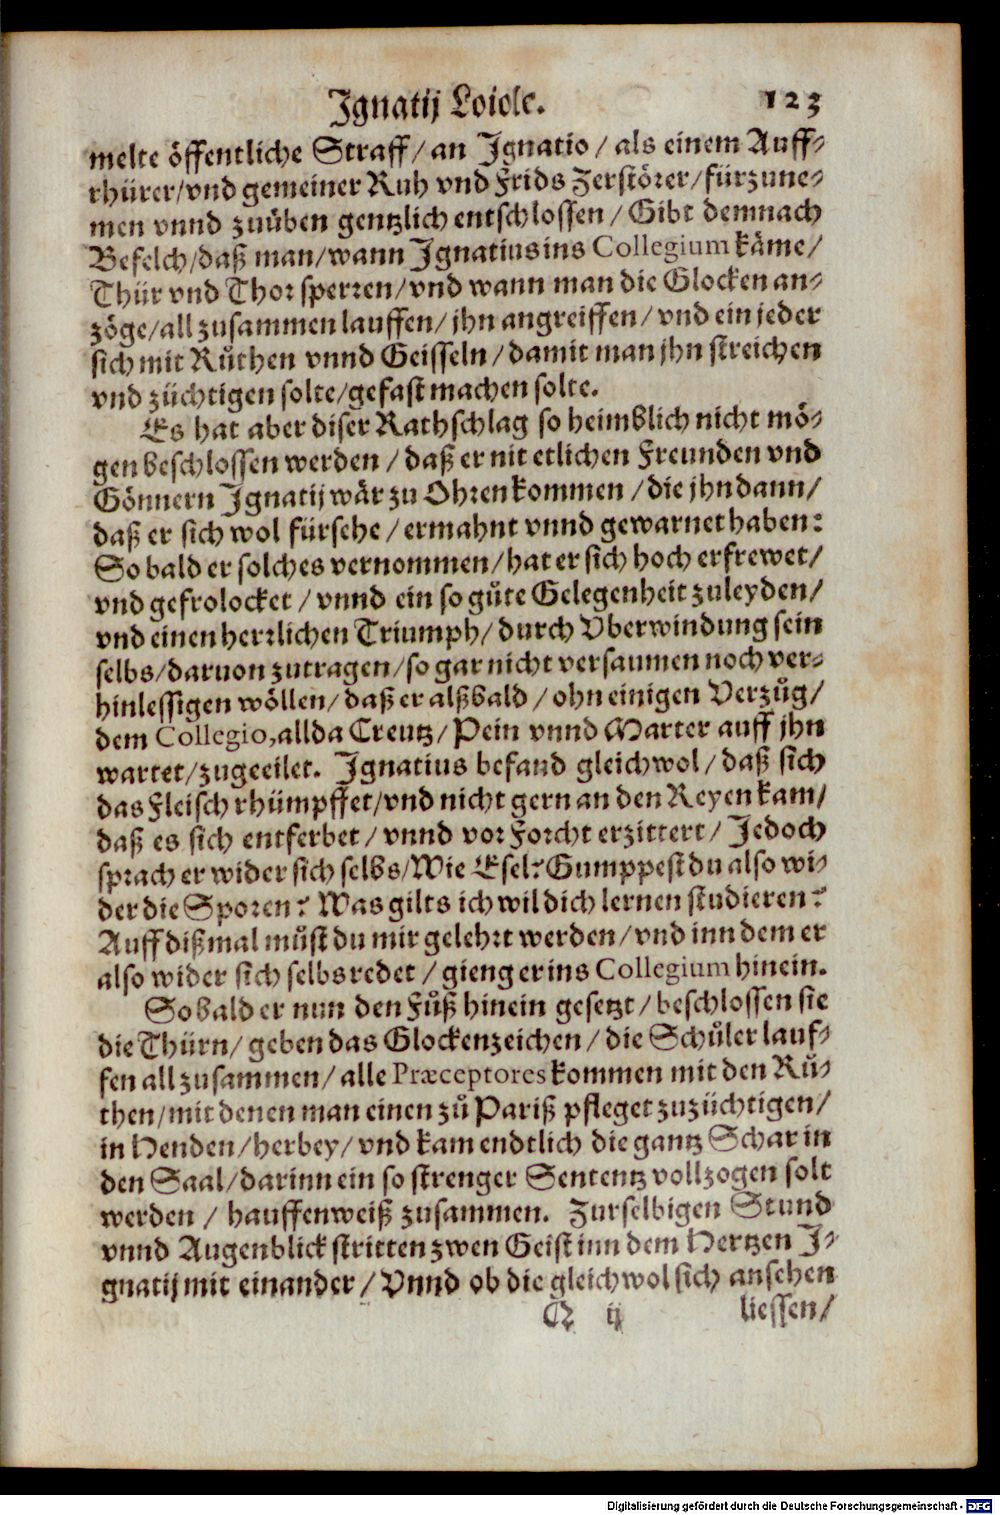 Ignatij Loiole. 123
melte öffentliche Straff/ an Ignatio/ als einem Auff-
rhürer/ vnd gemeiner Ruh vnd Frids Zerstörer/ fürzune-
men vnnd zuüben gentzlich entschlossen/ Gibt demnach
Befelch/ daß man/ wann Ignatius ins Collegium käme/
Thür vnd Thor sperren/ vnd wann man die Glocken an-
zöge/ all zusammen lauffen/ jhn angreiffen/ vnd ein jeder
sich mit Růthen vnnd Geisseln/ damit man jhn streichen
vnd züchtigen solte/ gefast machen solte.
Es hat aber diser Rathschlag so heimblich nicht mö-
gen beschlossen werden/ daß er nit etlichen Freunden vnd
Gönnern Ignatij wär zu Ohren kommen/ die jhn dann/
daß er sich wol fürsehe/ ermahnt vnnd gewarnet haben:
So bald er solches vernommen/ hat er sich hoch erfrewet/
vnd gefrolocket/ vnnd ein so gůte Gelegenheit zuleyden/
vnd einen herrlichen Triumph/ durch Vberwindung sein
selbs/ daruon zutragen/ so gar nicht versaumen noch ver-
hinlessigen wöllen/ daß er alßbald/ ohn einigen Verzůg/
dem Collegio, allda Creutz/ Pein vnnd Marter auff jhn
wartet/ zugeeilet. Ignatius befand gleichwol/ daß sich
das Fleisch rhümpffet/ vnd nicht gern an den Reyen kam/
daß es sich entferbet/ vnnd vor Forcht erzittert/ Jedoch
sprach er wider sich selbs/ Wie Esel? Gumppest du also wi-
der die Sporen? Was gilts ich wil dich lernen studieren?
Auff dißmal můst du mir gelehrt werden/ vnd inn dem er
also wider sich selbs redet/ gieng er ins Collegium hinein.
So bald er nun den Fůß hinein gesetzt/ beschlossen sie
die Thürn/ geben das Glockenzeichen/ die Schůler lauf-
fen all zusammen/ alle Præceptores kommen mit den Rů-
then/ mit denen man einen zů Pariß pfleget zuzüchtigen/
in Henden/ herbey/ vnd kam endtlich die gantz Schar in
den Saal/ darinn ein so strenger Sententz vollzogen solt
werden/ hauffenweiß zusammen. Zur selbigen Stund
vnnd Augenblick stritten zwen Geist inn dem Hertzen I-
gnatij mit einander/ Vnnd ob die gleichwol sich ansehen
Q ij liessen/
Digitalisierung gefördert durch die Deutsche Forschungsgemeinschaft - DFG